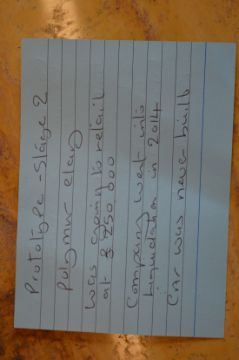 Prototype - Stage 2
Polymur clay
was going to retail
at $ 250 000
Company went into
liquidation in 2014
Car was never built